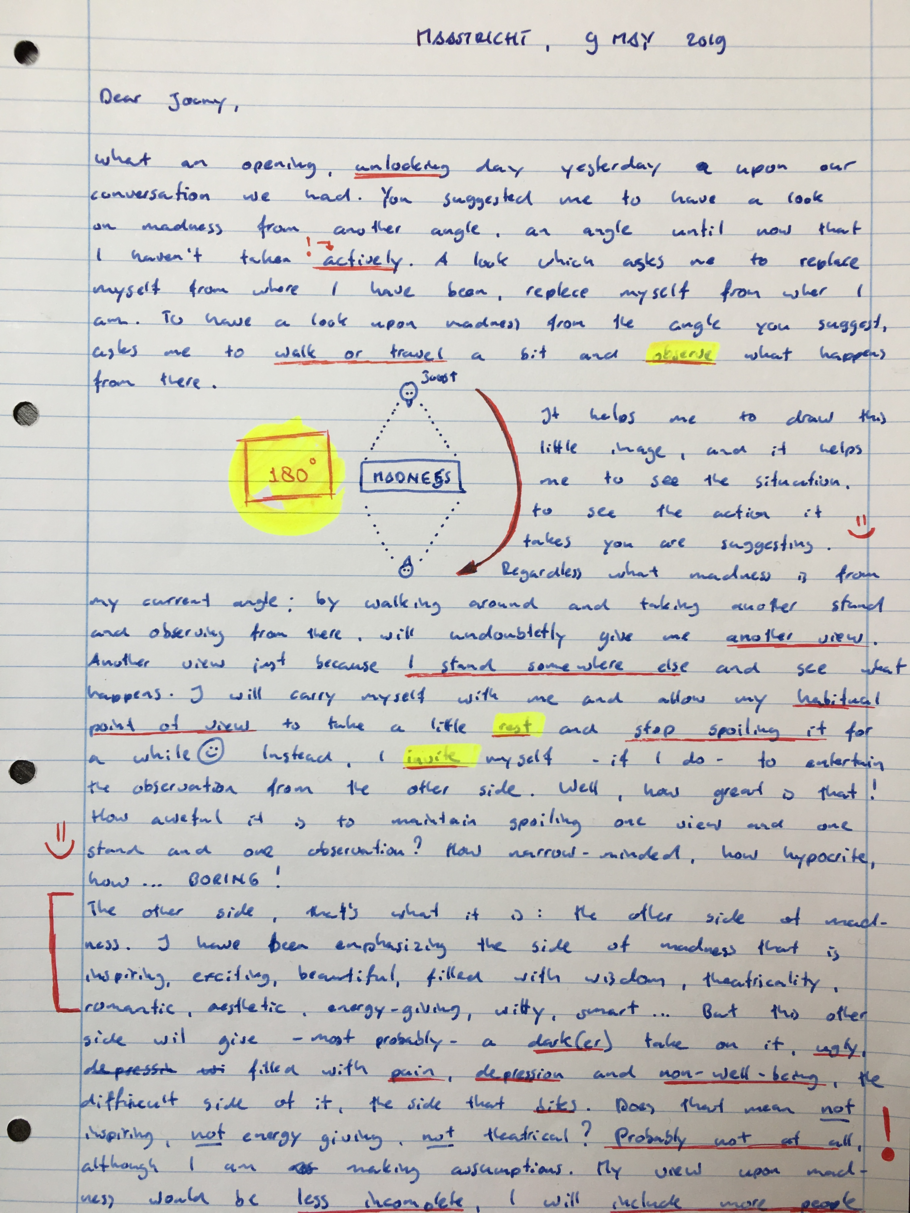 MAASTRICHT, 9 MAY 2019
Dear Joany,
what an opening, unlocking day yesterday upon our
conversation we had. You suggested me to have a look
on madness from another angle, an angle until now that
I haven't taken ! actively. A look which asks me to replace
myself from where I have been, replace myself from wher I
am. To have a look upon madness from the angle you suggest,
asks me to walk or travel a bit and observe what happens
from there.
Joost
180°
MADNESS
It helps me to draw this
little image, and it helps
me to see the situation.
to see the action it
takes you are suggesting.
Regardless what madness is from
my current angle; by walking around and taking another stand
and observing from there, will undoubtetly give me another view.
Another view just because I stand somewhere else and see what
happens. I will carry myself with me and allow my habitual
point of view to take a little rest and stop spoiling it for
a while Instead, I invite myself - if I do - to entertain
the observation from the other side. Well, how great is that!
How aweful it is to maintain spoiling one view and one
stand and one observation? How narrow-minded, how hypocrite,
how ... BORING!
The other side, that's what it is: the other side of mad-
ness. I have been emphasizing the side of madness that is
inspiring, exciting, beautiful, filled with wisdom, theatricality,
romantic, aesthetic, energy-giving, witty, smart... But this other
side will give - most probably - a dark(er) take on it, ugly,
depressin wi filled with pain, depression and non-well-being, the
difficult side of it, the side that bites. Does that mean not
inspiring, not energy giving, not theatrical? Probably not at all, !
although I am making assumptions. My view upon mad-
ness would be less incomplete, I will include more people